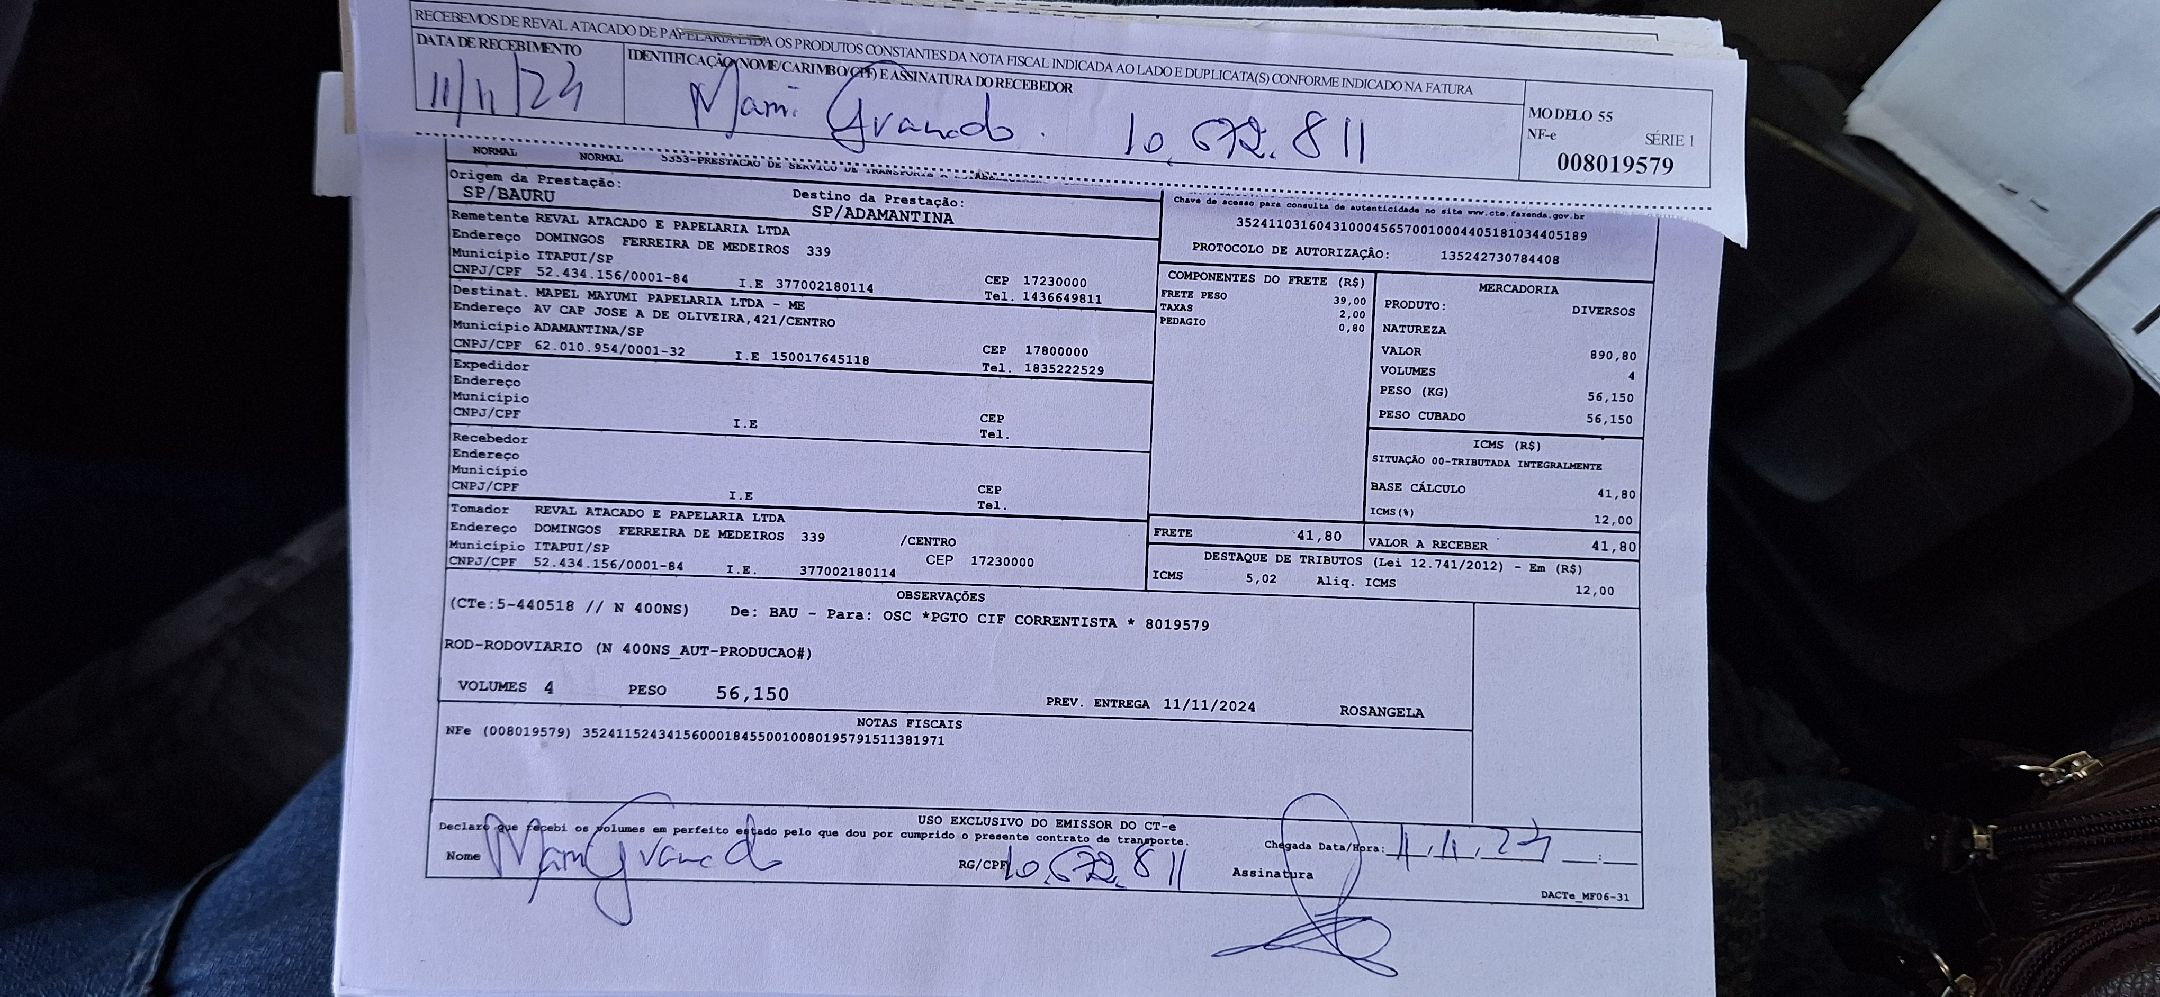 RECEBEMOS DE REVAL ATACADO DE PAPELARIA LTDA OS PRODUTOS CONSTANTES DA NOTA FISCAL INDICADA AO LADO E DUPLICATA(S) CONFORME INDICADO NA FATURA
DATA DE RECEBIMENTO
IDENTIFICAÇÃO(NOME/CARIMBO/CPF) E ASSINATURA DO RECEBEDOR
11/11/24
Granado. 10.672.811
MODELO 55
NF-e SÉRIE 1
008019579
NORMAL NORMAL 5353-PRESTACAO DE SERVICO DE TRANSPORTE
Origem da Prestação:
SP/BAURU
Destino da Prestação:
SP/ADAMANTINA
Chave de acesso para consulta de autenticidade no site www.cte.fazenda.gov.br
35241103160431000456570010004405181034405189
PROTOCOLO DE AUTORIZAÇÂO: 135242730784408
Remetente REVAL ATACADO E PAPELARIA LTDA
Endereço DOMINGOS FERREIRA DE MEDEIROS 339
Município ITAPUI/SP
CNPJ/CPF 52.434.156/0001-84 I.E 377002180114
CEP 17230000
Tel. 1436649811
Destinat. MAPEL MAYUMI PAPELARIA LTDA - ME
Endereço AV CAP JOSE A DE OLIVEIRA,421/CENTRO
Município ADAMANTINA/SP
CNPJ/CPF 62.010.954/0001-32 I.E 150017645118
CEP 17800000
Tel. 1835222529
Expedidor
Endereço
Município
CNPJ/CPF I.E
CEP
Tel.
Recebedor
Endereço
Município
CNPJ/CPF I.E
CEP
Tel.
Tomador REVAL ATACADO E PAPELARIA LTDA
Endereço DOMINGOS FERREIRA DE MEDEIROS 339 /CENTRO
Município ITAPUI/SP CEP 17230000
CNPJ/CPF 52.434.156/0001-84 I.E. 377002180114
COMPONENTES DO FRETE (R$)
FRETE PESO 39,00
TAXAS 2,00
PEDAGIO 0,80
MERCADORIA
PRODUTO: DIVERSOS
NATUREZA
VALOR 890,80
VOLUMES 4
PESO (KG) 56,150
PESO CUBADO 56,150
ICMS (R$)
SITUAÇÃO 00-TRIBUTADA INTEGRALMENTE
BASE CÁLCULO 41,80
ICMS(%) 12,00
FRETE 41,80
VALOR A RECEBER 41,80
DESTAQUE DE TRIBUTOS (Lei 12.741/2012) - Em (R$)
ICMS 5,02 Aliq. ICMS 12,00
OBSERVAÇÕES
(CTe:5-440518 // N 400NS) De: BAU - Para: OSC *PGTO CIF CORRENTISTA * 8019579
ROD-RODOVIARIO (N 400NS_AUT-PRODUCAO#)
VOLUMES 4 PESO 56,150 PREV. ENTREGA 11/11/2024 ROSANGELA
NOTAS FISCAIS
NFe (008019579) 35241152434156000184550010080195791511381971
USO EXCLUSIVO DO EMISSOR DO CT-e
Declaro que recebi os volumes em perfeito estado pelo que dou por cumprido o presente contrato de transporte.
Nome Granado RG/CPF 10.672.811
Chegada Data/Hora: 11.11.24 __:__
Assinatura
DACTe_MF06-31